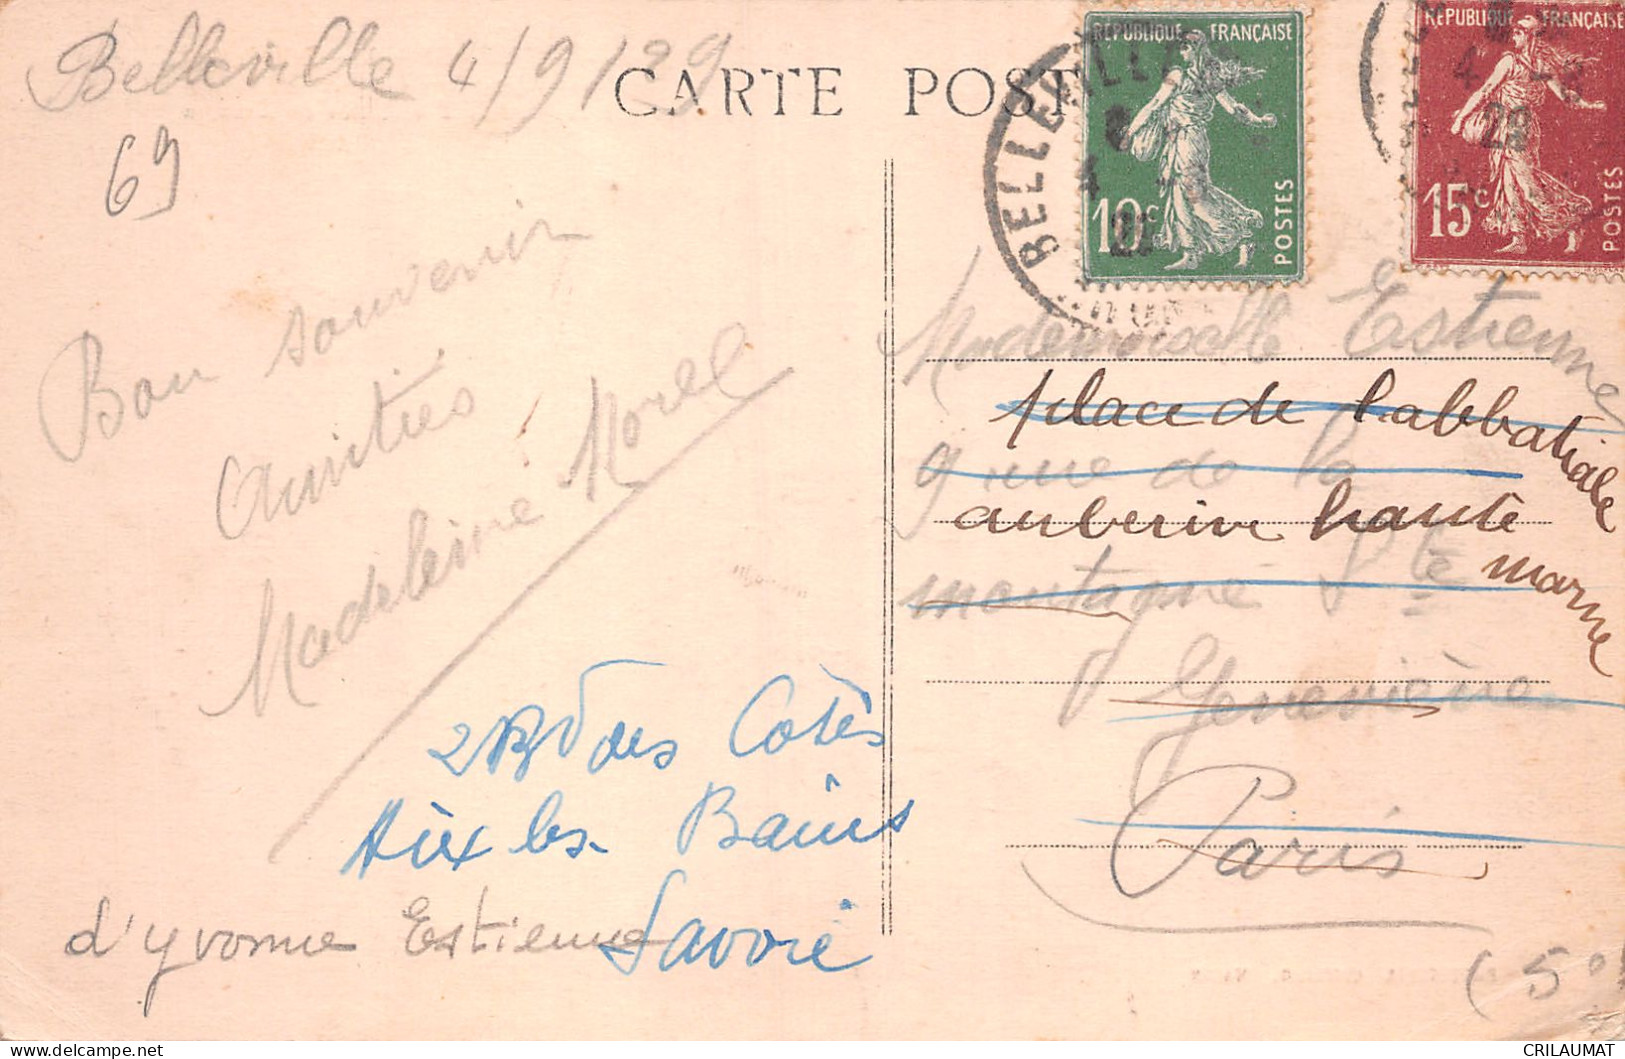 Belleville 4/9/29
69
CARTE POST
RÉPUBLIQUE FRANÇAISE
10c
POSTES
RÉPUBLIQUE FRANÇAISE
15c
POSTES
BELLEVILLE
4
29
Bon souvenir
Amitiés
Madeleine Morel
Mademoiselle Estienne
place de l'abbatiale
9 rue de la
auberive haute
marne
montagne Ste
Geneviève
Paris
(5e
2 Bd des Côtes
Aix les Bains
Savoie
d'yvonne Estienne
CRILAUMAT